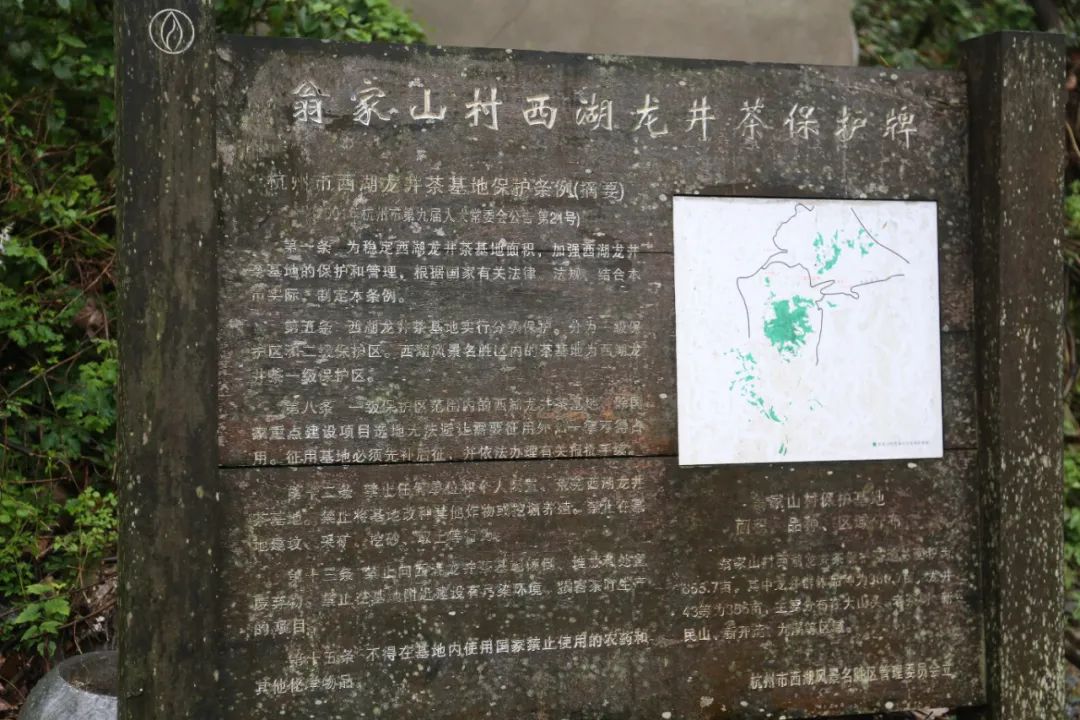 翁家山村西湖龙井茶保护牌
杭州市西湖龙井茶基地保护条例(摘要)
2001年杭州市第九届人大常委会公告 第21号)
第一条 为稳定西湖龙井茶基地面积，加强西湖龙井
茶基地的保护和管理，根据国家有关法律、法规，结合本
市实际，制定本条例。
第五条 西湖龙井茶基地实行分级保护。分为一级保
护区和二级保护区。西湖风景名胜区内的茶基地为西湖龙
井茶一级保护区。
第八条 一级保护区范围内的西湖龙井茶基地，除国
家重点建设项目选地无法避让需要征用外，一律不得占
用。征用基地必须先补后征，并依法办理有关报批手续。
第十二条 禁止任何单位和个人 西湖龙井
茶基地。禁止将基地改种其他作物或挖塘养殖。禁止在基
地建坟、采矿、挖砂、取土等行为。
第十三条 禁止向西湖龙井茶基地倾倒、堆放 
废弃物。禁止在基地附近建设有污染环境、 茶叶生产
的项目。
第十五条 不得在基地内使用国家禁止使用的农药和
其他化学物品。
翁家山村保护基地
面积、品种、区域分布
翁家山村
亩，其中龙井群体品种为 亩，龙井
43号为 亩，主要分布在
民山、 九溪等区域。
杭州市西湖风景名胜区管理委员会立